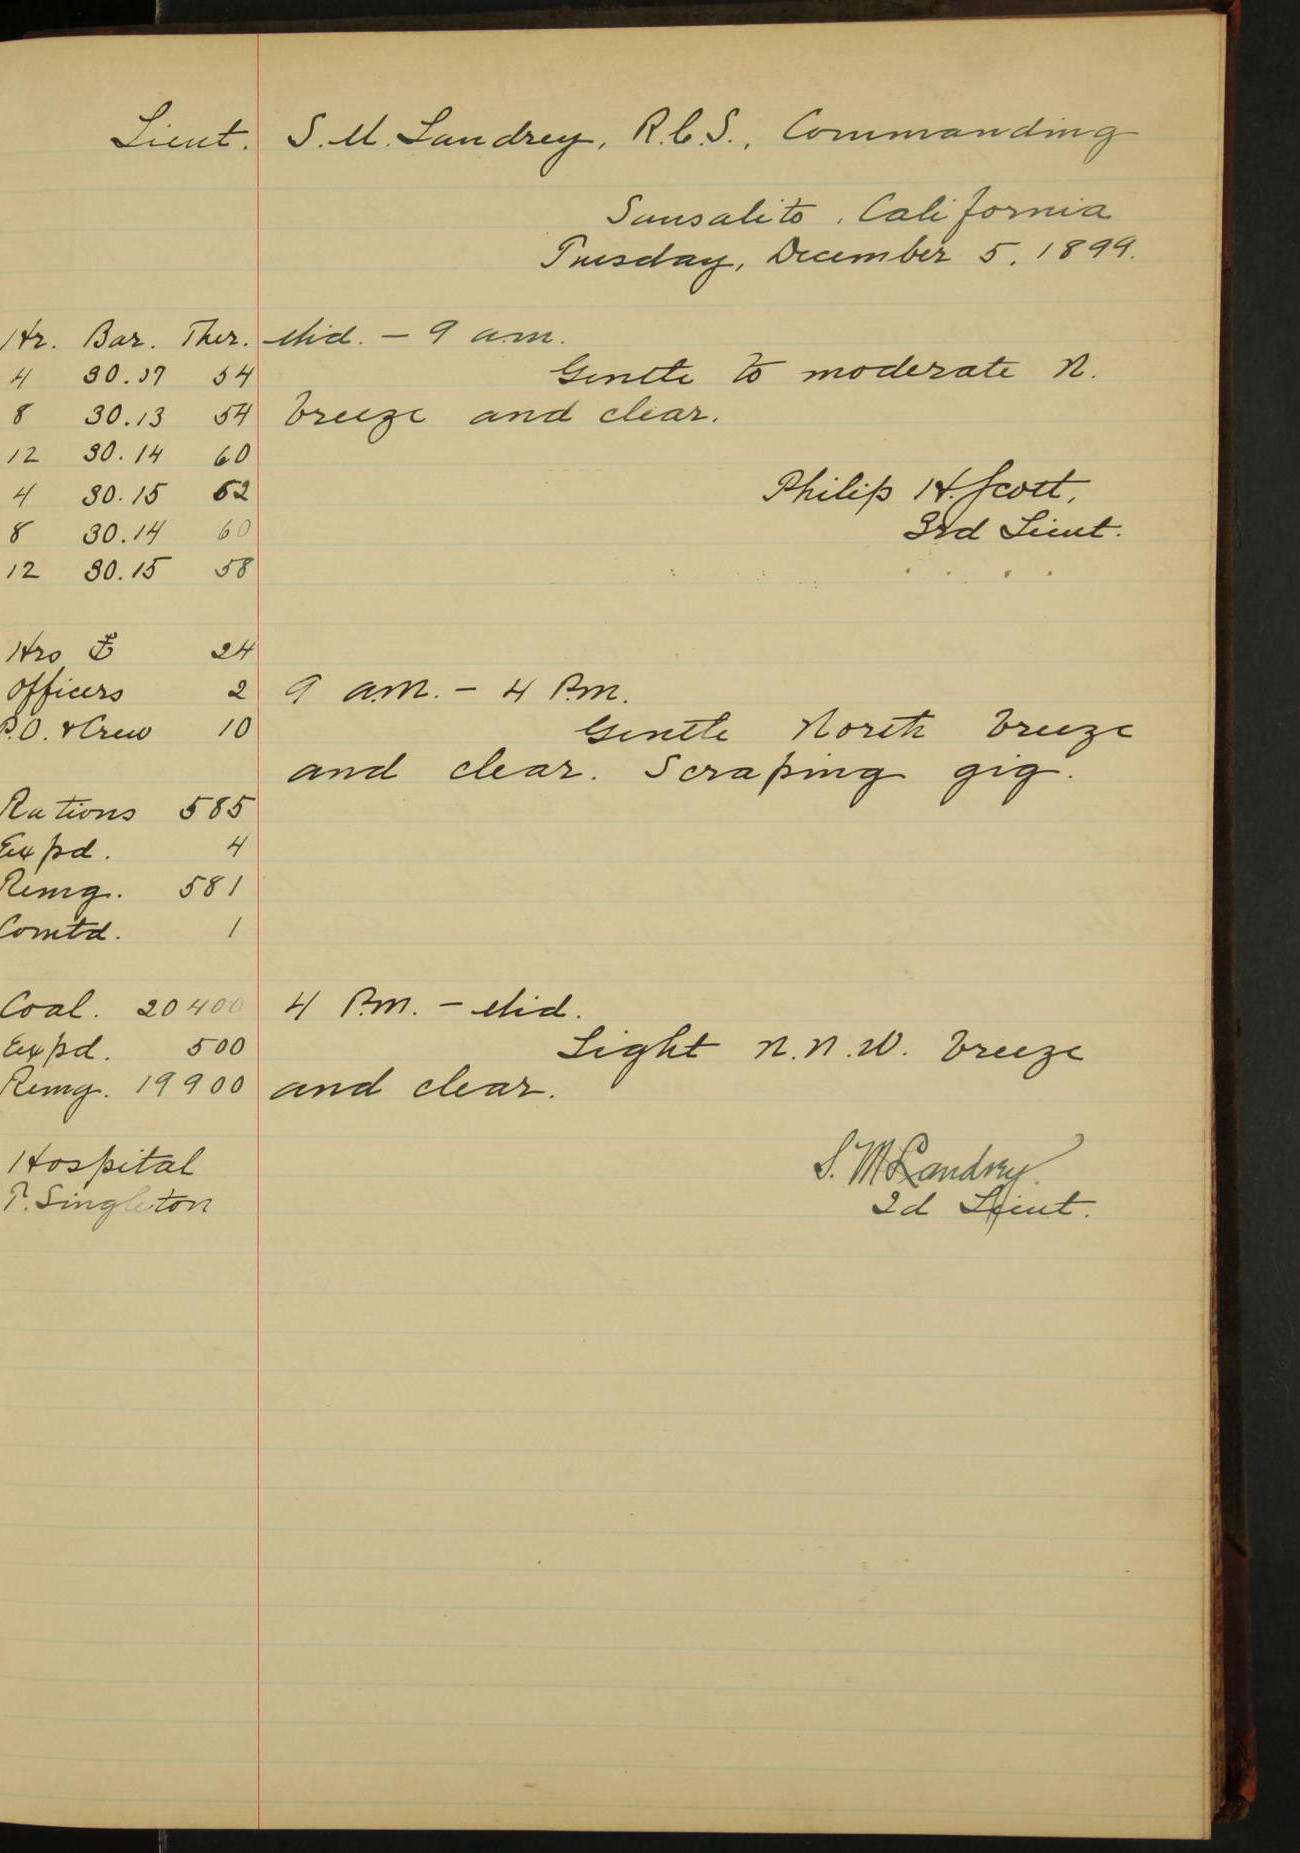 Lieut. S. M. Landrey, R.C.S., Commanding
Sausalito, California
Tuesday, December 5, 1899.
Hr. Bar. Ther. Mid. – 9 a.m.
4 54 Gentle to moderate N.
8 30.13 54 breeze and clear.
12 30.14 60
4 30.15 62 Philip H. Scott,
8 30.14 60 3rd Lieut.
12 30.15 58
Hrs 24
Officers 2 9 a.m. – 4 P.m.
P.O. & Crew 10 Gentle North breeze
and clear. Scraping gig.
Rations 585
Expd. 4
Remg. 581
Comtd. 1
Coal. 20400 4 P.m. – Mid.
Expd. 500 Light N.N.W. breeze
Remg. 19900 and clear.
Hospital S. M. Landrey.
T. Singleton 2d Lieut.